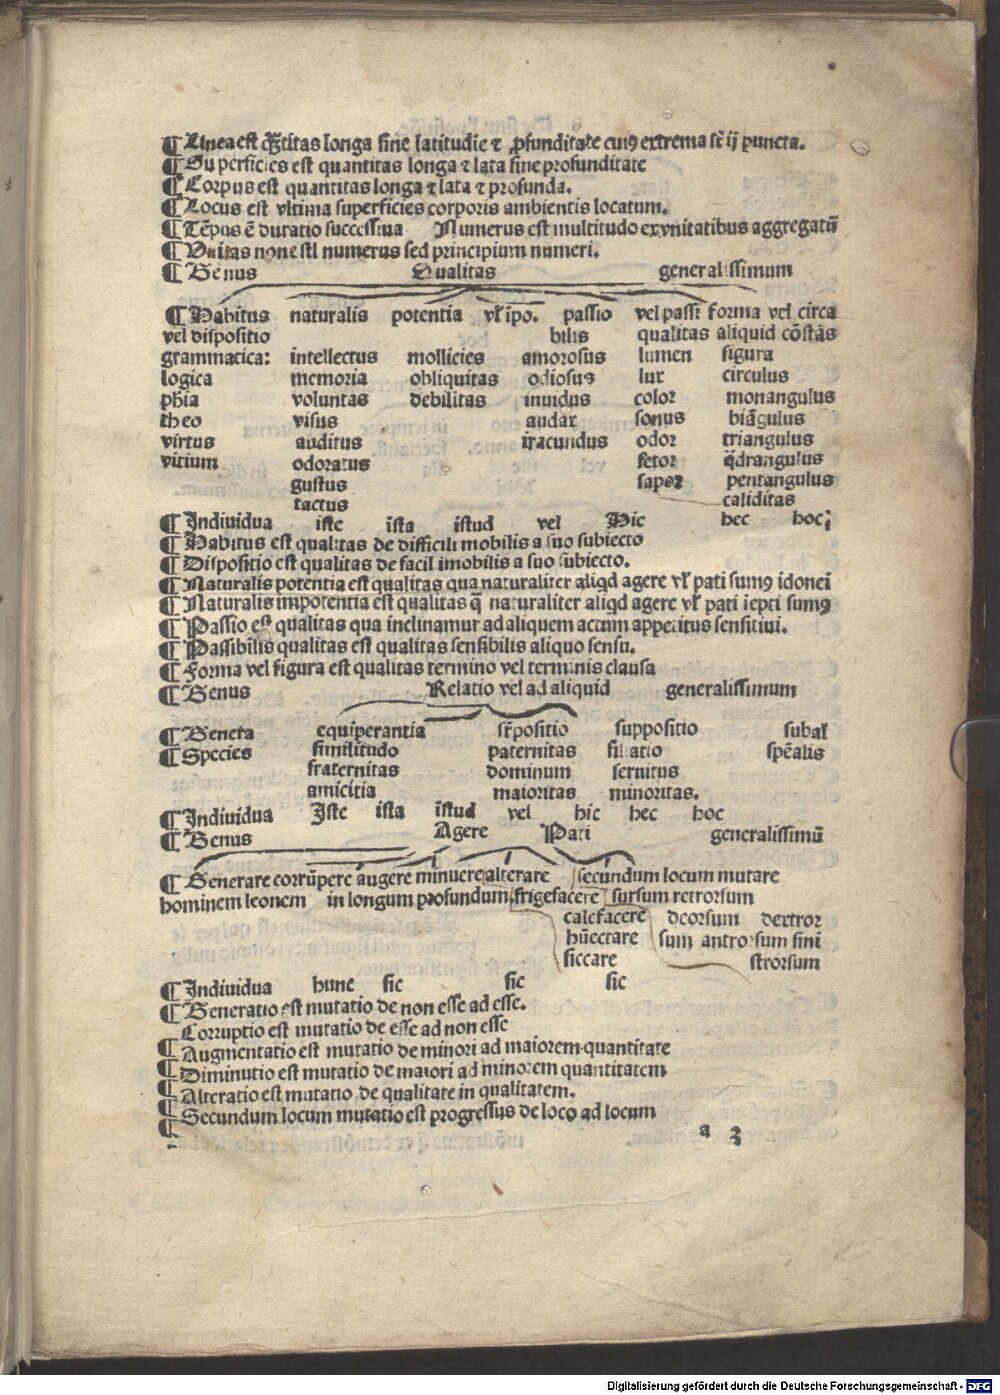 ¶ Linea est q̃ntitas longa sine latitudie ⁊ ꝓfunditate cuiꝰ extrema sũt ij puncta.
¶ Superficies est quantitas longa ⁊ lata sine profunditate
¶ Corpus est quantitas longa ⁊ lata ⁊ profunda.
¶ Locus est vltima superficies corporis ambientis locatum.
¶ Tẽpus ẽ duratio successiua Numerus est multitudo ex vnitatibus aggregatũ
¶ Vnitas non est numerus sed principium numeri.
¶ Genus Qualitas generalissimum
¶ Habitus naturalis potentia vl̃ ipo. passio vel passi forma vel circa
vel dispositio bilis qualitas aliquid cõstãs
grammatica: intellectus mollicies amorosus lumen figura
logica memoria obliquitas odiosus lux circulus
phia voluntas debilitas inuidus color monangulus
theo visus audax sonus biãgulus
virtus auditus iracundus odor triangulus
vitium odoratus fetor q̃drangulus
gustus sapor pentangulus
tactus caliditas
¶ Indiuidua iste ista istud vel Hic hec hoc;
¶ Habitus est qualitas de difficili mobilis a suo subiecto
¶ Dispositio est qualitas de facil imobilis a suo subiecto.
¶ Naturalis potentia est qualitas qua naturaliter aliqd agere vl̃ pati sumꝰ idonei
¶ Naturalis impotentia est qualitas q̃ naturaliter aliqd agere vl̃ pati iepti sumꝰ
¶ Passio est qualitas qua inclinamur ad aliquem actum appetitus sensitiui.
¶ Passibilis qualitas est qualitas sensibilis aliquo sensu.
¶ Forma vel figura est qualitas termino vel terminis clausa
¶ Genus Relatio vel ad aliquid generalissimum
¶ Genera equiperantia sr̃positio suppositio subal̃
¶ Species similitudo paternitas filiatio spẽalis
fraternitas dominum seruitus
amicitia maioritas minoritas.
¶ Indiuidua Iste ista istud vel hic hec hoc
¶ Genus Agere Pati generalissimũ
¶ Generare corrũpere augere minuere alterare secundum locum mutare
hominem leonem in longum profundum frigefacere sursum retrorsum
calefacere deorsum dextror
hũectare sum antrorsum sini
siccare strorsum
¶ Indiuidua hunc sic sic sic
¶ Generatio est mutatio de non esse ad esse.
Corruptio est mutatio de esse ad non esse
¶ Augmentatio est mutatio de minori ad maiorem quantitate
¶ Diminutio est mutatio de maiori ad minorem quantitatem
¶ Alteratio est mutatio de qualitate in qualitatem.
¶ Secundum locum mutatio est progressus de loco ad locum
a 3
Digitalisierung gefördert durch die Deutsche Forschungsgemeinschaft - DFG